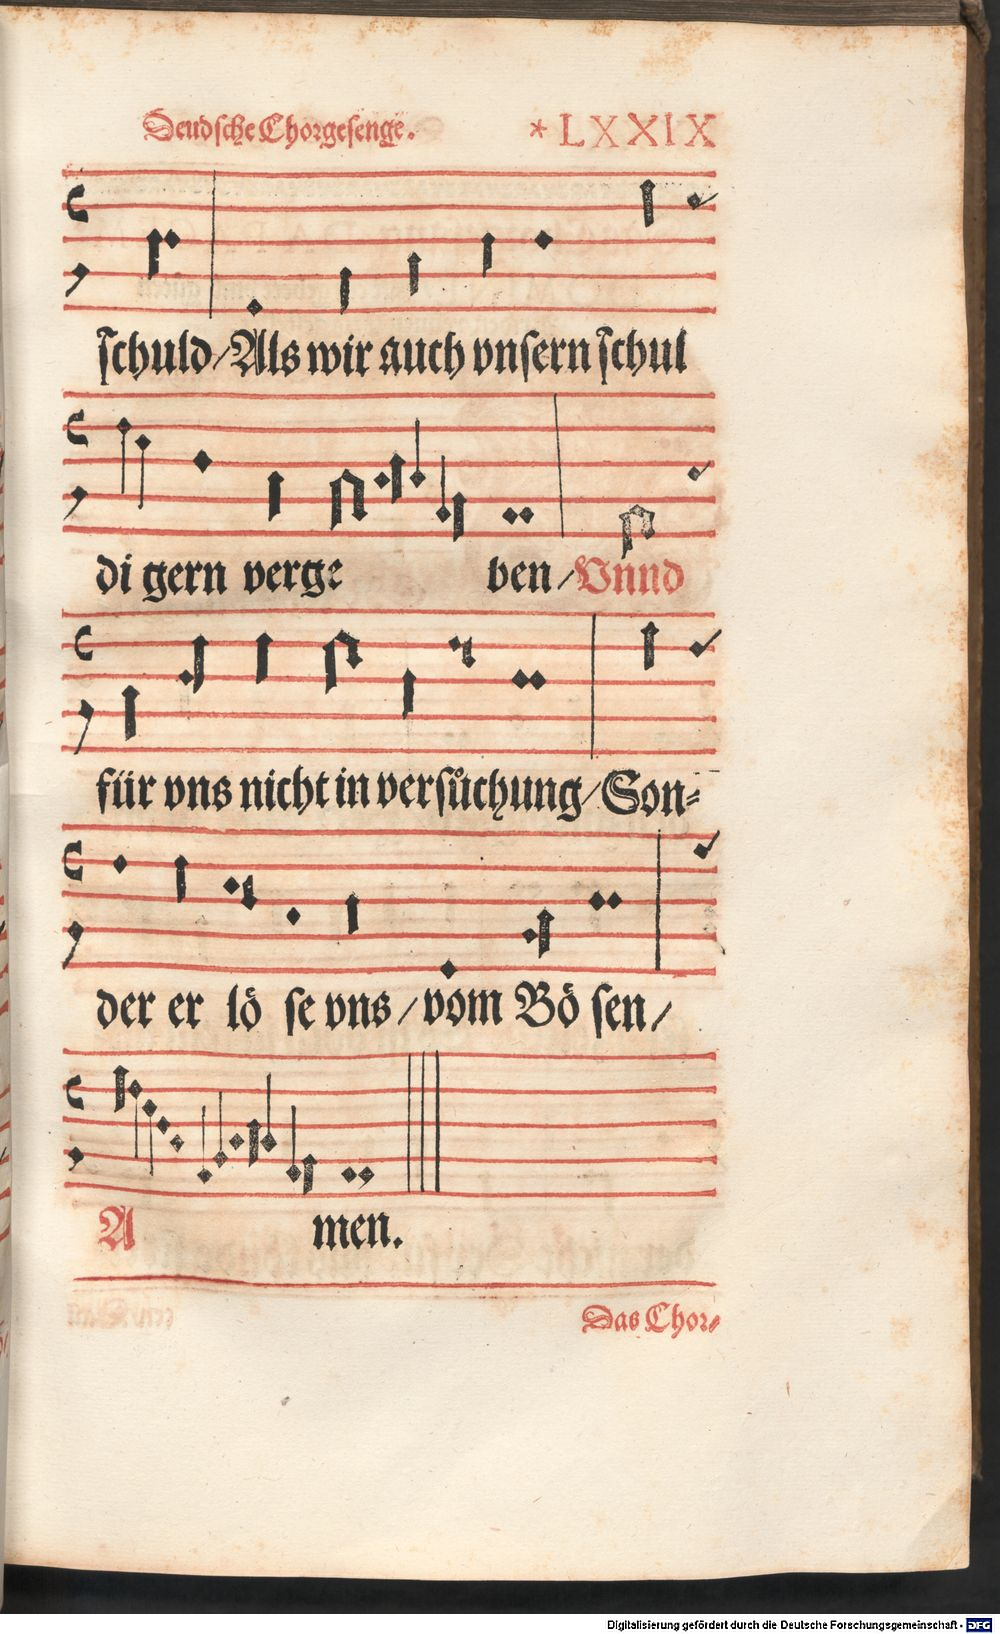 Deudsche Chorgesenge. * LXXIX
ſchuld/Als wir auch vnſern ſchul
di gern verge ben/Vnnd
für vns nicht in verſůchung/Son⸗
der er lö ſe vns/vom Bö ſen/
A men.
Das Chor⸗
Digitalisierung gefördert durch die Deutsche Forschungsgemeinschaft - DFG